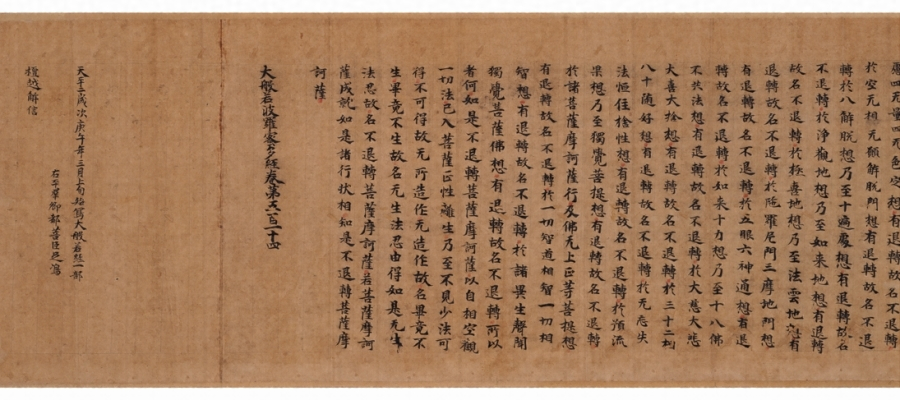 慮四无量四无色定想有退轉故名不退
於空无相无願解脫門想有退轉故名不退
轉於八解脫想乃至十遍處想有退轉故名
不退轉於淨觀地想乃至如來地想有退轉
故名不退轉於極喜地想乃至法雲地想有
退轉故名不退轉於陁羅尼門三摩地門想
有退轉故名不退轉於五眼六神通想有退
轉故名不退轉於如來十力想乃至十八佛
不共法想有退轉故名不退轉於大慈大悲
大喜大捨想有退轉故名不退轉於三十二相
八十随好想有退轉故名不退轉於无忘失
法恒住捨性想有退轉故名不退轉於預流
果想乃至獨覺菩提想有退轉故名不退轉
於諸菩薩摩訶薩行及佛无上正等菩提想
有退轉故名不退轉於一切智道相智一切相
智想有退轉故名不退轉於諸異生聲聞
獨覺菩薩佛想有退轉故名不退轉所以
者何如是不退轉菩薩摩訶薩以自相空觀
一切法已入菩薩正性離生乃至不見少法可
得不可得故无所造作无造作故名畢竟不
生畢竟不生故名无生法忍由得如是无生
法忍故名不退轉菩薩摩訶薩若菩薩摩訶
薩成就如是諸行狀相知是不退轉菩薩摩
訶薩
大般若波羅蜜多經卷第三百二十四
天平二歲次庚午年三月上旬始寫大般若經一部
右 郷 臣足
檀越解信